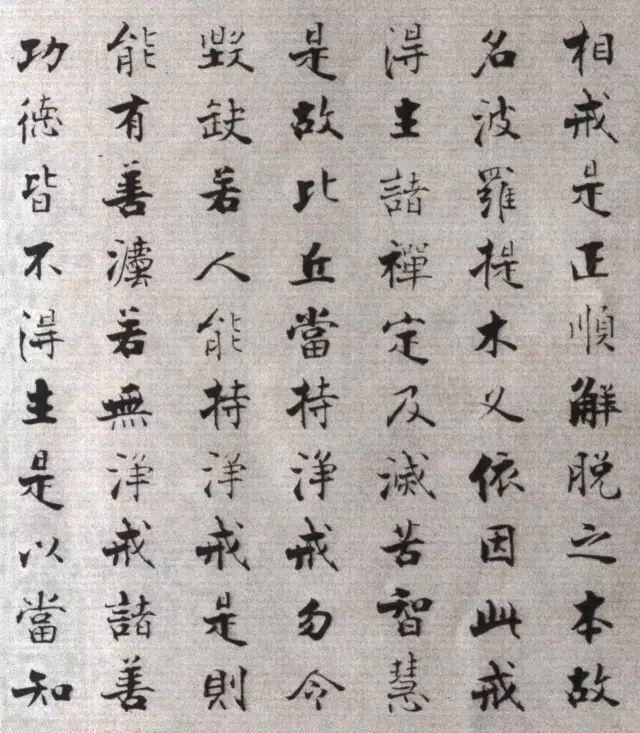 相戒是正順解脫之本故
名波羅提木义依因此戒
得生諸禪定及滅苦智慧
是故比丘當持淨戒勿令
毀缺若人能持淨戒是則
能有善灋若無淨戒諸善
功德皆不得生是以當知